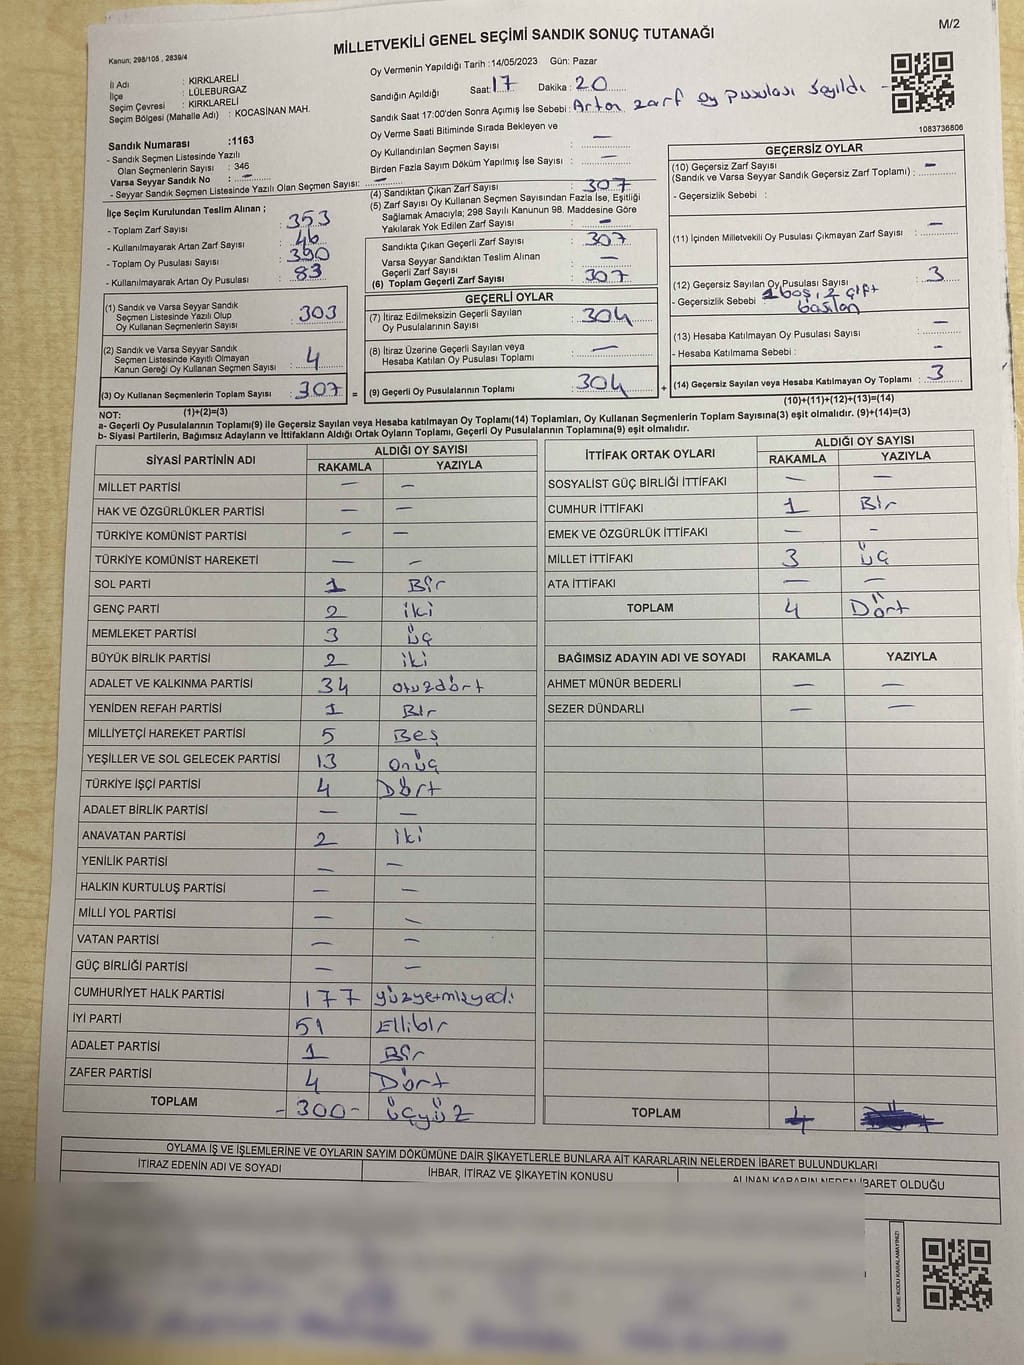 M/2
MİLLETVEKİLİ GENEL SEÇİMİ SANDIK SONUÇ TUTANAĞI
Kanun: 298/105 , 2839/4
İl Adı : KIRKLARELİ
İlçe : LÜLEBURGAZ
Seçim Çevresi : KIRKLARELİ
Seçim Bölgesi (Mahalle Adı) : KOCASİNAN MAH.
Oy Vermenin Yapıldığı Tarih : 14/05/2023 Gün: Pazar
Sandığın Açıldığı Saat: 17 Dakika : 20
Sandık Saat 17:00'den Sonra Açımış İse Sebebi : Artan zarf oy pusulası sayıldı -
Oy Verme Saati Bitiminde Sırada Bekleyen ve
Oy Kullandırılan Seçmen Sayısı : —
Birden Fazla Sayım Döküm Yapılmış İse Sayısı : —
1083736806
Sandık Numarası :1163
- Sandık Seçmen Listesinde Yazılı
Olan Seçmenlerin Sayısı : 346
Varsa Seyyar Sandık No : —
- Seyyar Sandık Seçmen Listesinde Yazılı Olan Seçmen Sayısı: —
İlçe Seçim Kurulundan Teslim Alınan ;
- Toplam Zarf Sayısı : 353
- Kullanılmayarak Artan Zarf Sayısı : 46
- Toplam Oy Pusulası Sayısı : 390
- Kullanılmayarak Artan Oy Pusulası : 83
(1) Sandık ve Varsa Seyyar Sandık
Seçmen Listesinde Yazılı Olup
Oy Kullanan Seçmenlerin Sayısı : 303
(2) Sandık ve Varsa Seyyar Sandık
Seçmen Listesinde Kayıtlı Olmayan
Kanun Gereği Oy Kullanan Seçmen Sayısı : 4
(3) Oy Kullanan Seçmenlerin Toplam Sayısı : 307 =
(1)+(2)=(3)
(4) Sandıktan Çıkan Zarf Sayısı : 307
(5) Zarf Sayısı Oy Kullanan Seçmen Sayısından Fazla İse, Eşitliği
Sağlamak Amacıyla; 298 Sayılı Kanunun 98. Maddesine Göre
Yakılarak Yok Edilen Zarf Sayısı : —
Sandıkta Çıkan Geçerli Zarf Sayısı : 307
Varsa Seyyar Sandıktan Teslim Alınan
Geçerli Zarf Sayısı : —
(6) Toplam Geçerli Zarf Sayısı : 307
GEÇERLİ OYLAR
(7) İtiraz Edilmeksizin Geçerli Sayılan
Oy Pusulalarının Sayısı : 304
(8) İtiraz Üzerine Geçerli Sayılan veya
Hesaba Katılan Oy Pusulası Toplamı : —
(9) Geçerli Oy Pusulalarının Toplamı : 304 +
GEÇERSİZ OYLAR
(10) Geçersiz Zarf Sayısı —
(Sandık ve Varsa Seyyar Sandık Geçersiz Zarf Toplamı) :
- Geçersizlik Sebebi :
(11) İçinden Milletvekili Oy Pusulası Çıkmayan Zarf Sayısı : —
(12) Geçersiz Sayılan Oy Pusulası Sayısı : 3
- Geçersizlik Sebebi 1 boş, 2 çift
basılan
(13) Hesaba Katılmayan Oy Pusulası Sayısı : —
- Hesaba Katılmama Sebebi : —
(14) Geçersiz Sayılan veya Hesaba Katılmayan Oy Toplamı : 3
(10)+(11)+(12)+(13)=(14)
NOT:
a- Geçerli Oy Pusulalarının Toplamı(9) ile Geçersiz Sayılan veya Hesaba katılmayan Oy Toplamı(14) Toplamları, Oy Kullanan Seçmenlerin Toplam Sayısına(3) eşit olmalıdır. (9)+(14)=(3)
b- Siyasi Partilerin, Bağımsız Adayların ve İttifakların Aldığı Ortak Oyların Toplamı, Geçerli Oy Pusulalarının Toplamına(9) eşit olmalıdır.
SİYASİ PARTİNİN ADI ALDIĞI OY SAYISI
RAKAMLA YAZIYLA
MİLLET PARTİSİ — —
HAK VE ÖZGÜRLÜKLER PARTİSİ — —
TÜRKİYE KOMÜNİST PARTİSİ — —
TÜRKİYE KOMÜNİST HAREKETİ — —
SOL PARTİ 1 Bir
GENÇ PARTİ 2 iki
MEMLEKET PARTİSİ 3 üç
BÜYÜK BİRLİK PARTİSİ 2 iki
ADALET VE KALKINMA PARTİSİ 34 otuzdört
YENİDEN REFAH PARTİSİ 1 Bir
MİLLİYETÇİ HAREKET PARTİSİ 5 Beş
YEŞİLLER VE SOL GELECEK PARTİSİ 13 onüç
TÜRKİYE İŞÇİ PARTİSİ 4 Dört
ADALET BİRLİK PARTİSİ — —
ANAVATAN PARTİSİ 2 iki
YENİLİK PARTİSİ — —
HALKIN KURTULUŞ PARTİSİ — —
MİLLİ YOL PARTİSİ — —
VATAN PARTİSİ — —
GÜÇ BİRLİĞİ PARTİSİ — —
CUMHURİYET HALK PARTİSİ 177 yüzyetmişyedi
İYİ PARTİ 51 Ellibir
ADALET PARTİSİ 1 Bir
ZAFER PARTİSİ 4 Dört
TOPLAM -300- üçyüz
İTTİFAK ORTAK OYLARI ALDIĞI OY SAYISI
RAKAMLA YAZIYLA
SOSYALİST GÜÇ BİRLİĞİ İTTİFAKI — —
CUMHUR İTTİFAKI 1 Bir
EMEK VE ÖZGÜRLÜK İTTİFAKI — -
MİLLET İTTİFAKI 3 üç
ATA İTTİFAKI — —
TOPLAM 4 Dört
BAĞIMSIZ ADAYIN ADI VE SOYADI RAKAMLA YAZIYLA
AHMET MÜNÜR BEDERLİ — —
SEZER DÜNDARLI — —
TOPLAM 4
OYLAMA İŞ VE İŞLEMLERİNE VE OYLARIN SAYIM DÖKÜMÜNE DAİR ŞİKAYETLERLE BUNLARA AİT KARARLARIN NELERDEN İBARET BULUNDUKLARI
İTİRAZ EDENİN ADI VE SOYADI İHBAR, İTİRAZ VE ŞİKAYETİN KONUSU ALINAN KARARIN NEDEN İBARET OLDUĞU
KARE KODU KARALAMAYINIZ!